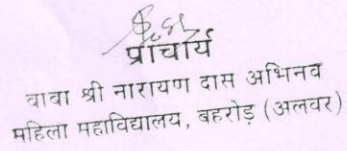 प्राचार्य
बाबा श्री नारायण दास अभिनव
महिला महाविद्यालय, बहरोड़ (अलवर)